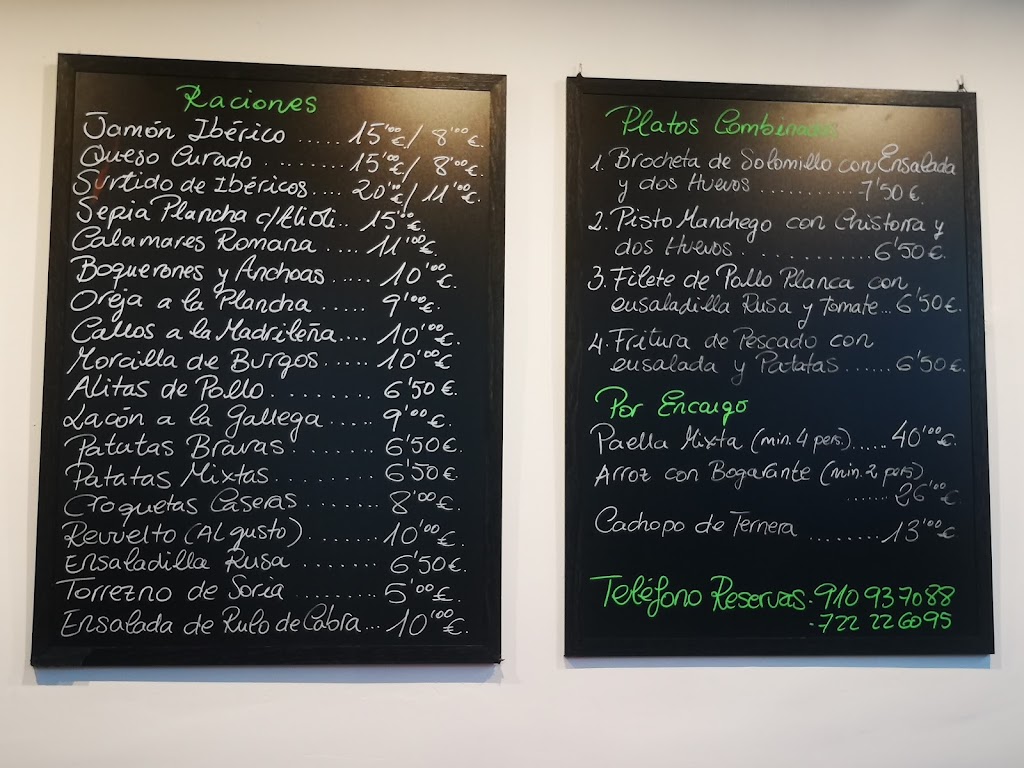 Raciones
Jamón Ibérico ...... 15'00€/ 8'00€.
Queso Curado .......... 15'00€/ 8'00€.
Surtido de Ibéricos.... 20'00€/ 11'00€.
Sepia Plancha c/Alioli.. 15'00€.
Calamares Romana ..... 11'00€.
Boquerones y Anchoas .... 10'00€.
Oreja a la Plancha ..... 9'00€.
Callos a la Madrileña.... 10'00€.
Morcilla de Burgos ...... 10'00€
Alitas de Pollo .......... 6'50€.
Lacón a la Gallega ...... 9'00€.
Patatas Bravas ........ 6'50€.
Patatas Mixtas ......... 6'50€.
Croquetas Caseras ....... 8'00€.
Revuelto (Al gusto) ....... 10'00€
Ensaladilla Rusa ........ 6'50€.
Torrezno de Soria ......... 5'00€.
Ensalada de Rulo de Cabra... 10'00€.
Platos Combinados
1. Brocheta de Solomillo con Ensalada
y dos Huevos ........... 7'50€.
2. Pisto Manchego con Chistorra y
dos Huevos ............ 6'50€.
3. Filete de Pollo Planca con
ensaladilla Rusa y tomate... 6'50€.
4. Fritura de Pescado con
ensalada y Patatas ...... 6'50€.
Por Encargo
Paella Mixta (min. 4 pers.)..... 40'00€.
Arroz con Bogavante (min. 2 pers)
...... 26'00€
Cachopo de Ternera ........ 13'00€
Teléfono Reservas: 910 937088
· 722 226095